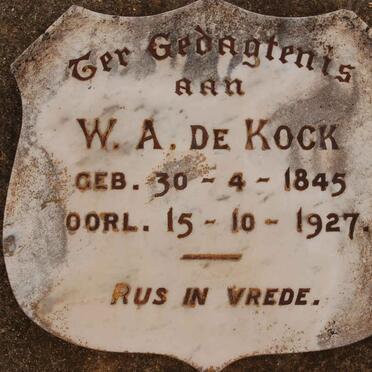 Ter Gedagtenis
aan
W. A. DE KOCK
GEB. 30 - 4 - 1845
OORL. 15 - 10 - 1927.
RUS IN VREDE.